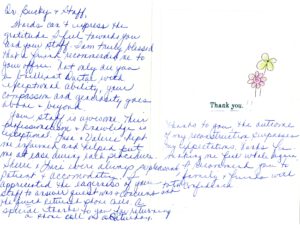 Dr. Bucky + Staff,
Words can't express the
gratitude I feel towards you
and your staff. I am truly blessed
that a friend recommended me to
your office. Not only are you
a brilliant Doctor with
exceptional ability, your
compassion and generosity goes
above + beyond
Your staff is awesome. Their
professionalism + knowledge is
exceptional. Thea + kept
me informed and helped put
me at ease during both procedures.
Sherie + were always pleasant
patient + accomodating. I
appreciated the eagerness of your
staff to answer questions + concerns and
the quick returned phone calls. A
special thanks to you for returning
a phone call on Saturday.
Thank you.
Thanks to you, the outcome
of my reconstruction surpasses
my expectations. Thanks for
making me feel whole again.
I recommend you to
family + friends with
total confidence